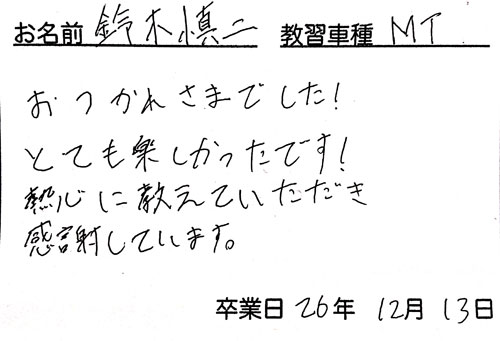 お名前 鈴木慎二 教習車種 MT
おつかれさまでした!
とても楽しかったです!
熱心に教えていただき
感謝しています。
卒業日 26年 12月 13日